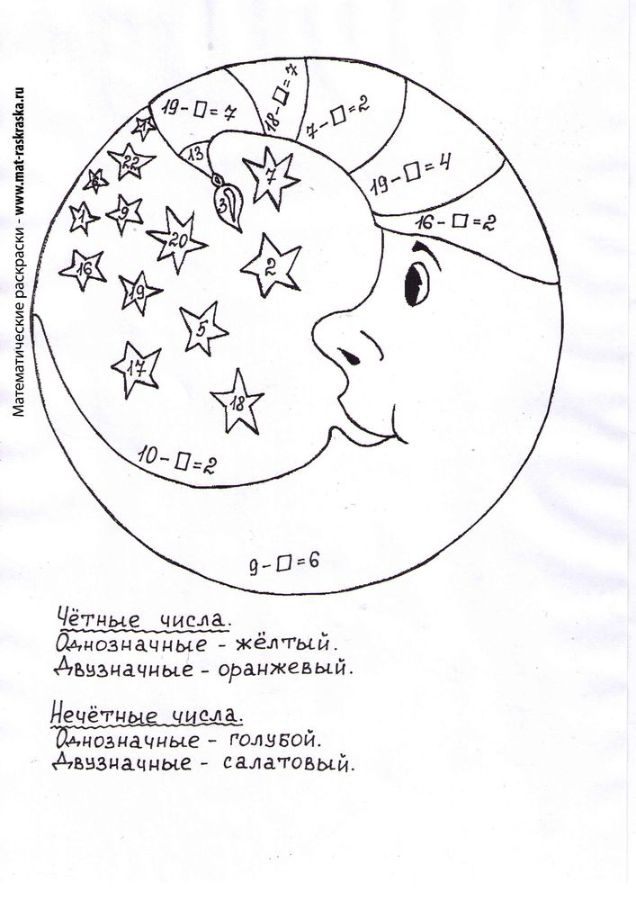 Математические раскраски - www.mat-raskraska.ru
19-□=7
18-□=7
7-□=2
19-□=4
16-□=2
13
3
7
7
22
8
1
9
20
16
19
2
5
17
18
10-□=2
9-□=6
Чётные числа.
Однозначные - жёлтый.
Двузначные - оранжевый.
Нечётные числа.
Однозначные - голубой.
Двузначные - салатовый.